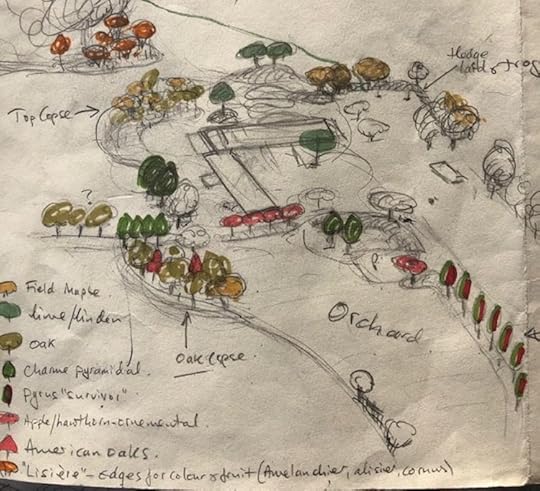 Hedge
Top Copse
?
P.
Field Maple
lime/linden
Oak
Orchard
Oak copse.
Charme pyramidal.
Pyrus "survivor"
Apple/hawthorn-ornemental.
American Oaks.
"Lisière" - Edges for colour & fruit (Amelanchier, alisier, cornus)